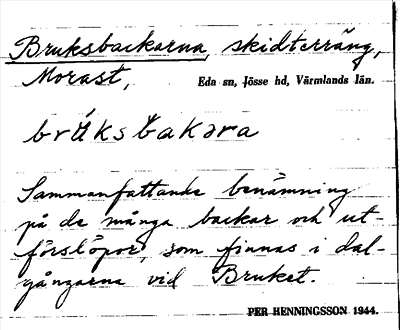 Bruksbackarna, skidterräng,
Morast, Eda sn, Jösse hd, Värmlands län.
brúksbakəra
Sammanfattande benämning
på de många backar och ut-
förslöpor, som finnas i dal-
gångarna vid Bruket.
PER HENNINGSSON 1944.